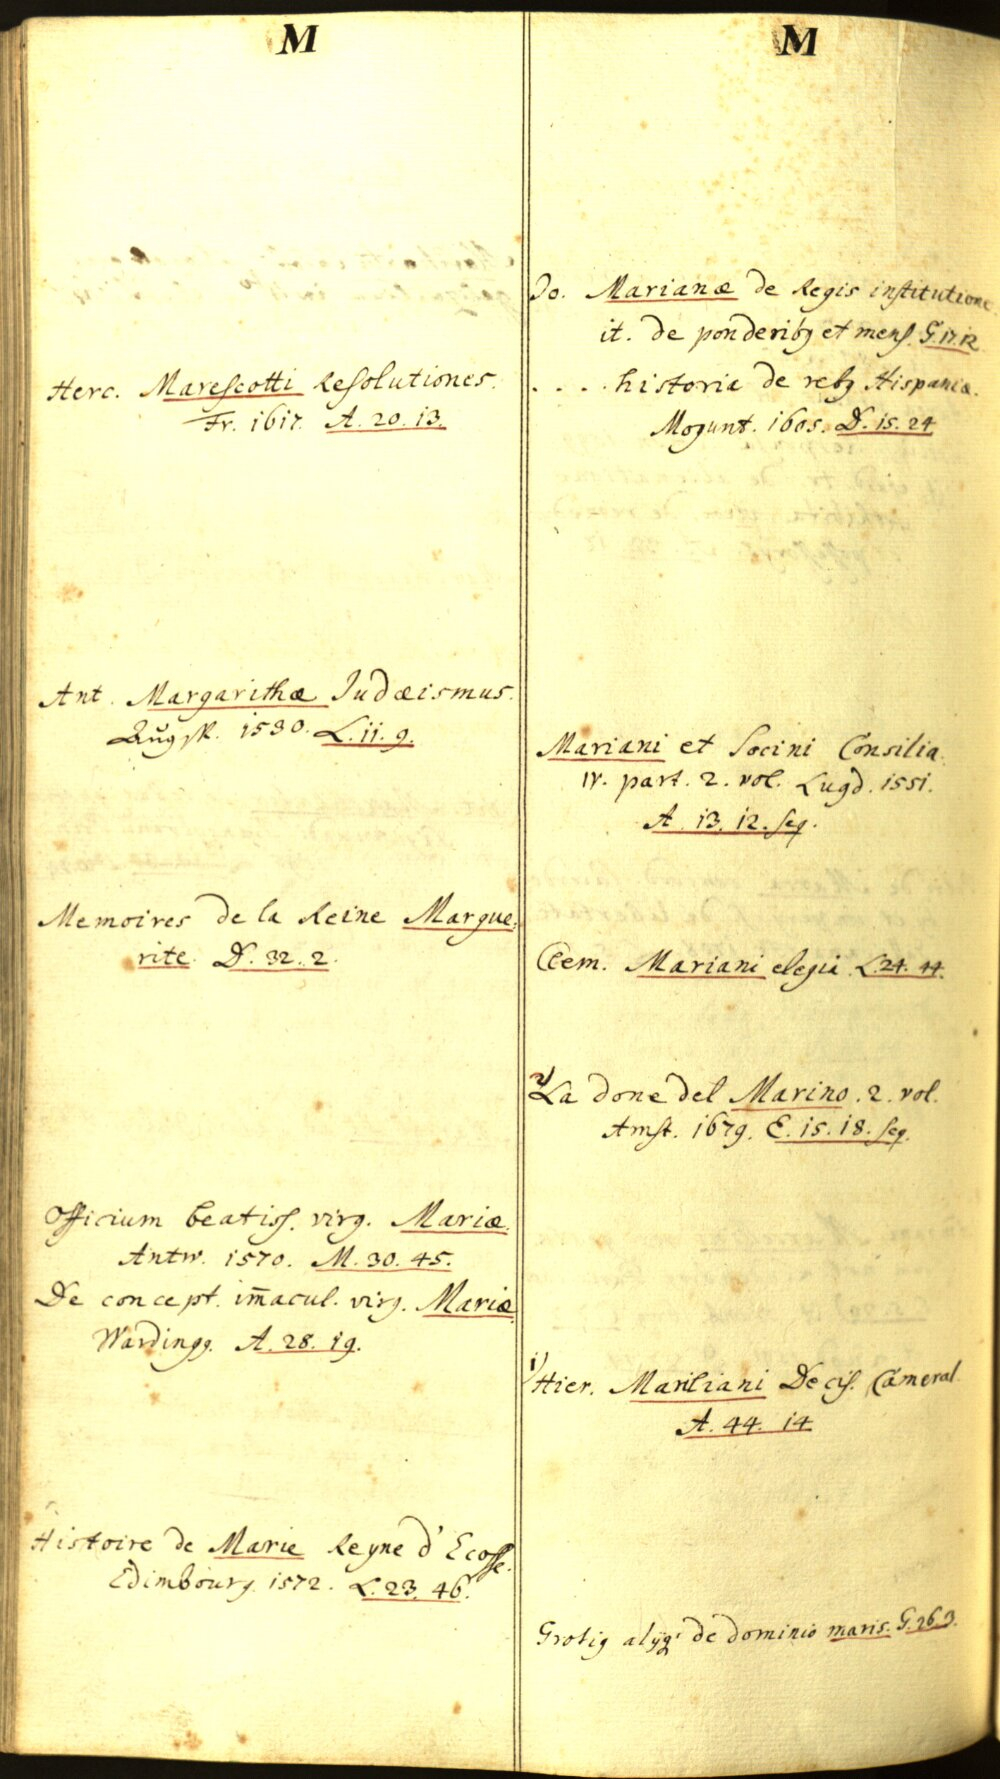 M
Herc. Marescotti Resolutiones.
Fr. 1617. A. 20. 13.
Ant. Margarithæ Judæismus.
Augsp. 1530. L. 11. 9.
Memoires de la Reine Margue-
rite. D. 32. 2.
Officium beatiss. virg. Mariæ.
Antw. 1570. M. 30. 45.
De concept. im̄acul. virg. Mariæ
Wardingg. A. 28. 19.
Histoire de Marie Reyne d'Ecosse.
Edimbourg. 1572. L. 23. 46.
M
Jo. Marianæ de Regis institutione
it. de ponderibꝫ et mens. G. 17. 12
. . . . historia de rebꝫ Hispaniæ.
Mogunt. 1605. D. 15. 24
Mariani et Socini Consilia.
IV. part. 2. vol. Lugd. 1551.
A. 13. 12. seq.
Clem. Mariani elegia. L. 24. 44.
2) La done del Marino. 2. vol.
Amst. 1679. E. 15. 18. seq.
1) Hier. Mariliani Decis. Cameral.
A. 44. 14
Grotiꝰ aliiqꝫ de dominio maris. G. 26. 3.